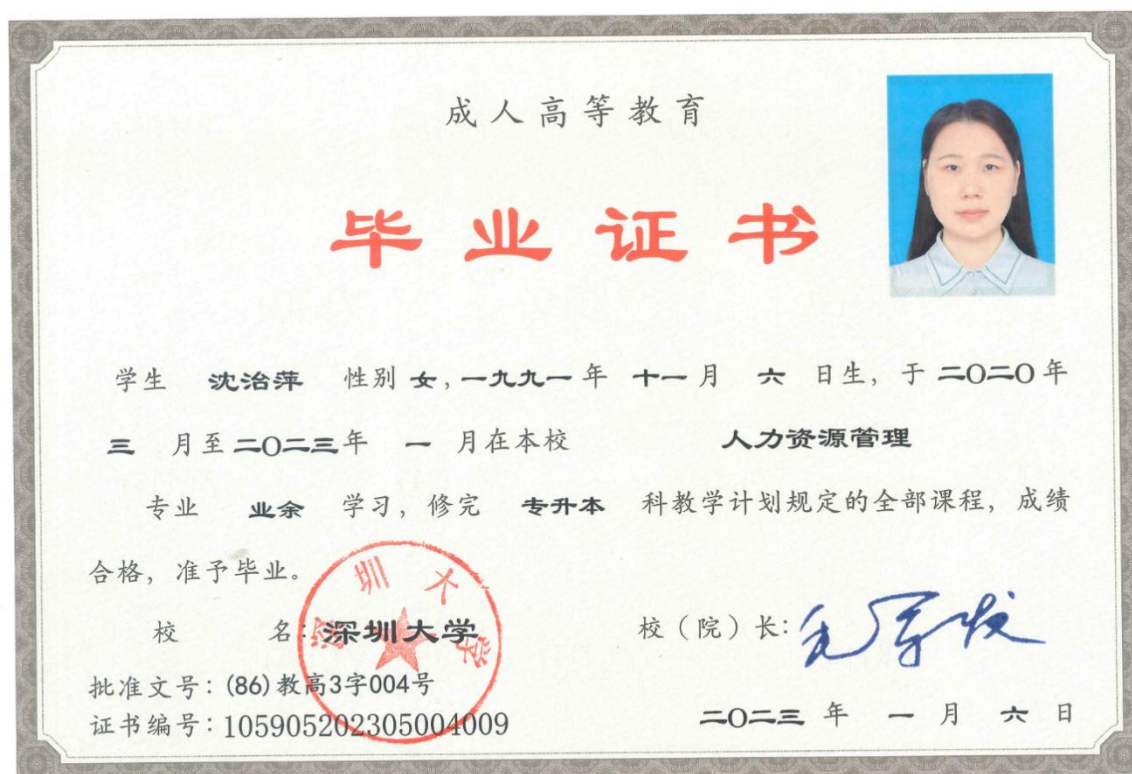 成人高等教育
毕业证书
学生 沈治萍 性别 女,一九九一年 十一月 六 日生, 于 二〇二〇年
三 月至二〇二三年 一 月在本校 人力资源管理
专业 业余 学习, 修完 专升本 科教学计划规定的全部课程, 成绩
合格, 准予毕业。
深圳大学
校 名:深圳大学 校（院）长: 毛军发
批准文号: (86)教高3字004号
证书编号: 105905202305004009
二〇二三 年 一 月 六 日